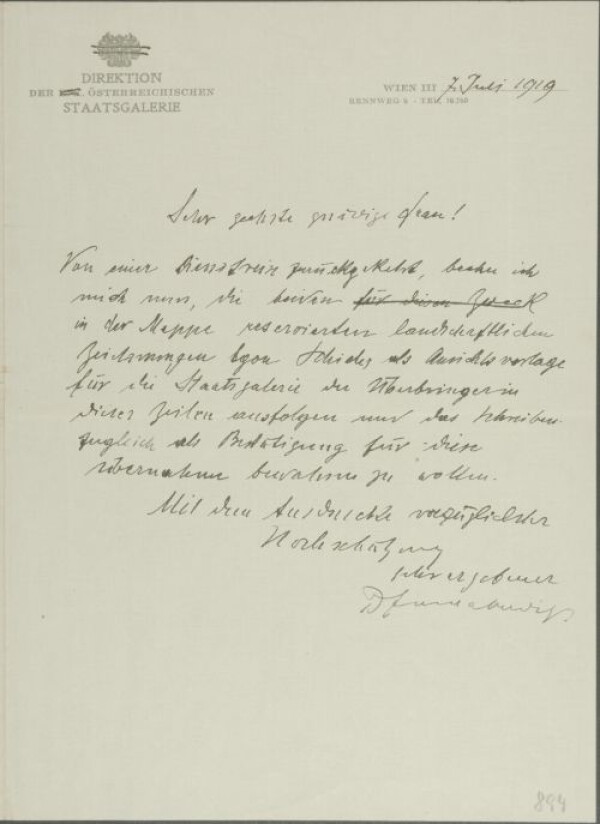 DIREKTION
DER ÖSTERREICHISCHEN
STAATSGALERIE
WIEN III 7. Juli 1919
RENNWEG 6 - TEL.
Sehr geehrte gnädige Frau!
Von einer Dienstreise zurückgekehrt, beehre ich
mich nun, die beiden für diesen Zweck
in der Mappe reservierten landschaftlichen
Zeichnungen Egon Schieles als Ansichtsvorlage
für die Staatsgalerie der Überbringerin
dieser Zeilen ausfolgen und das Schreiben
zugleich als Bestätigung für diese
Übernahme bewahren zu wollen.
Mit dem Ausdrucke vorzüglichster
Hochschätzung
sehr ergebener
894